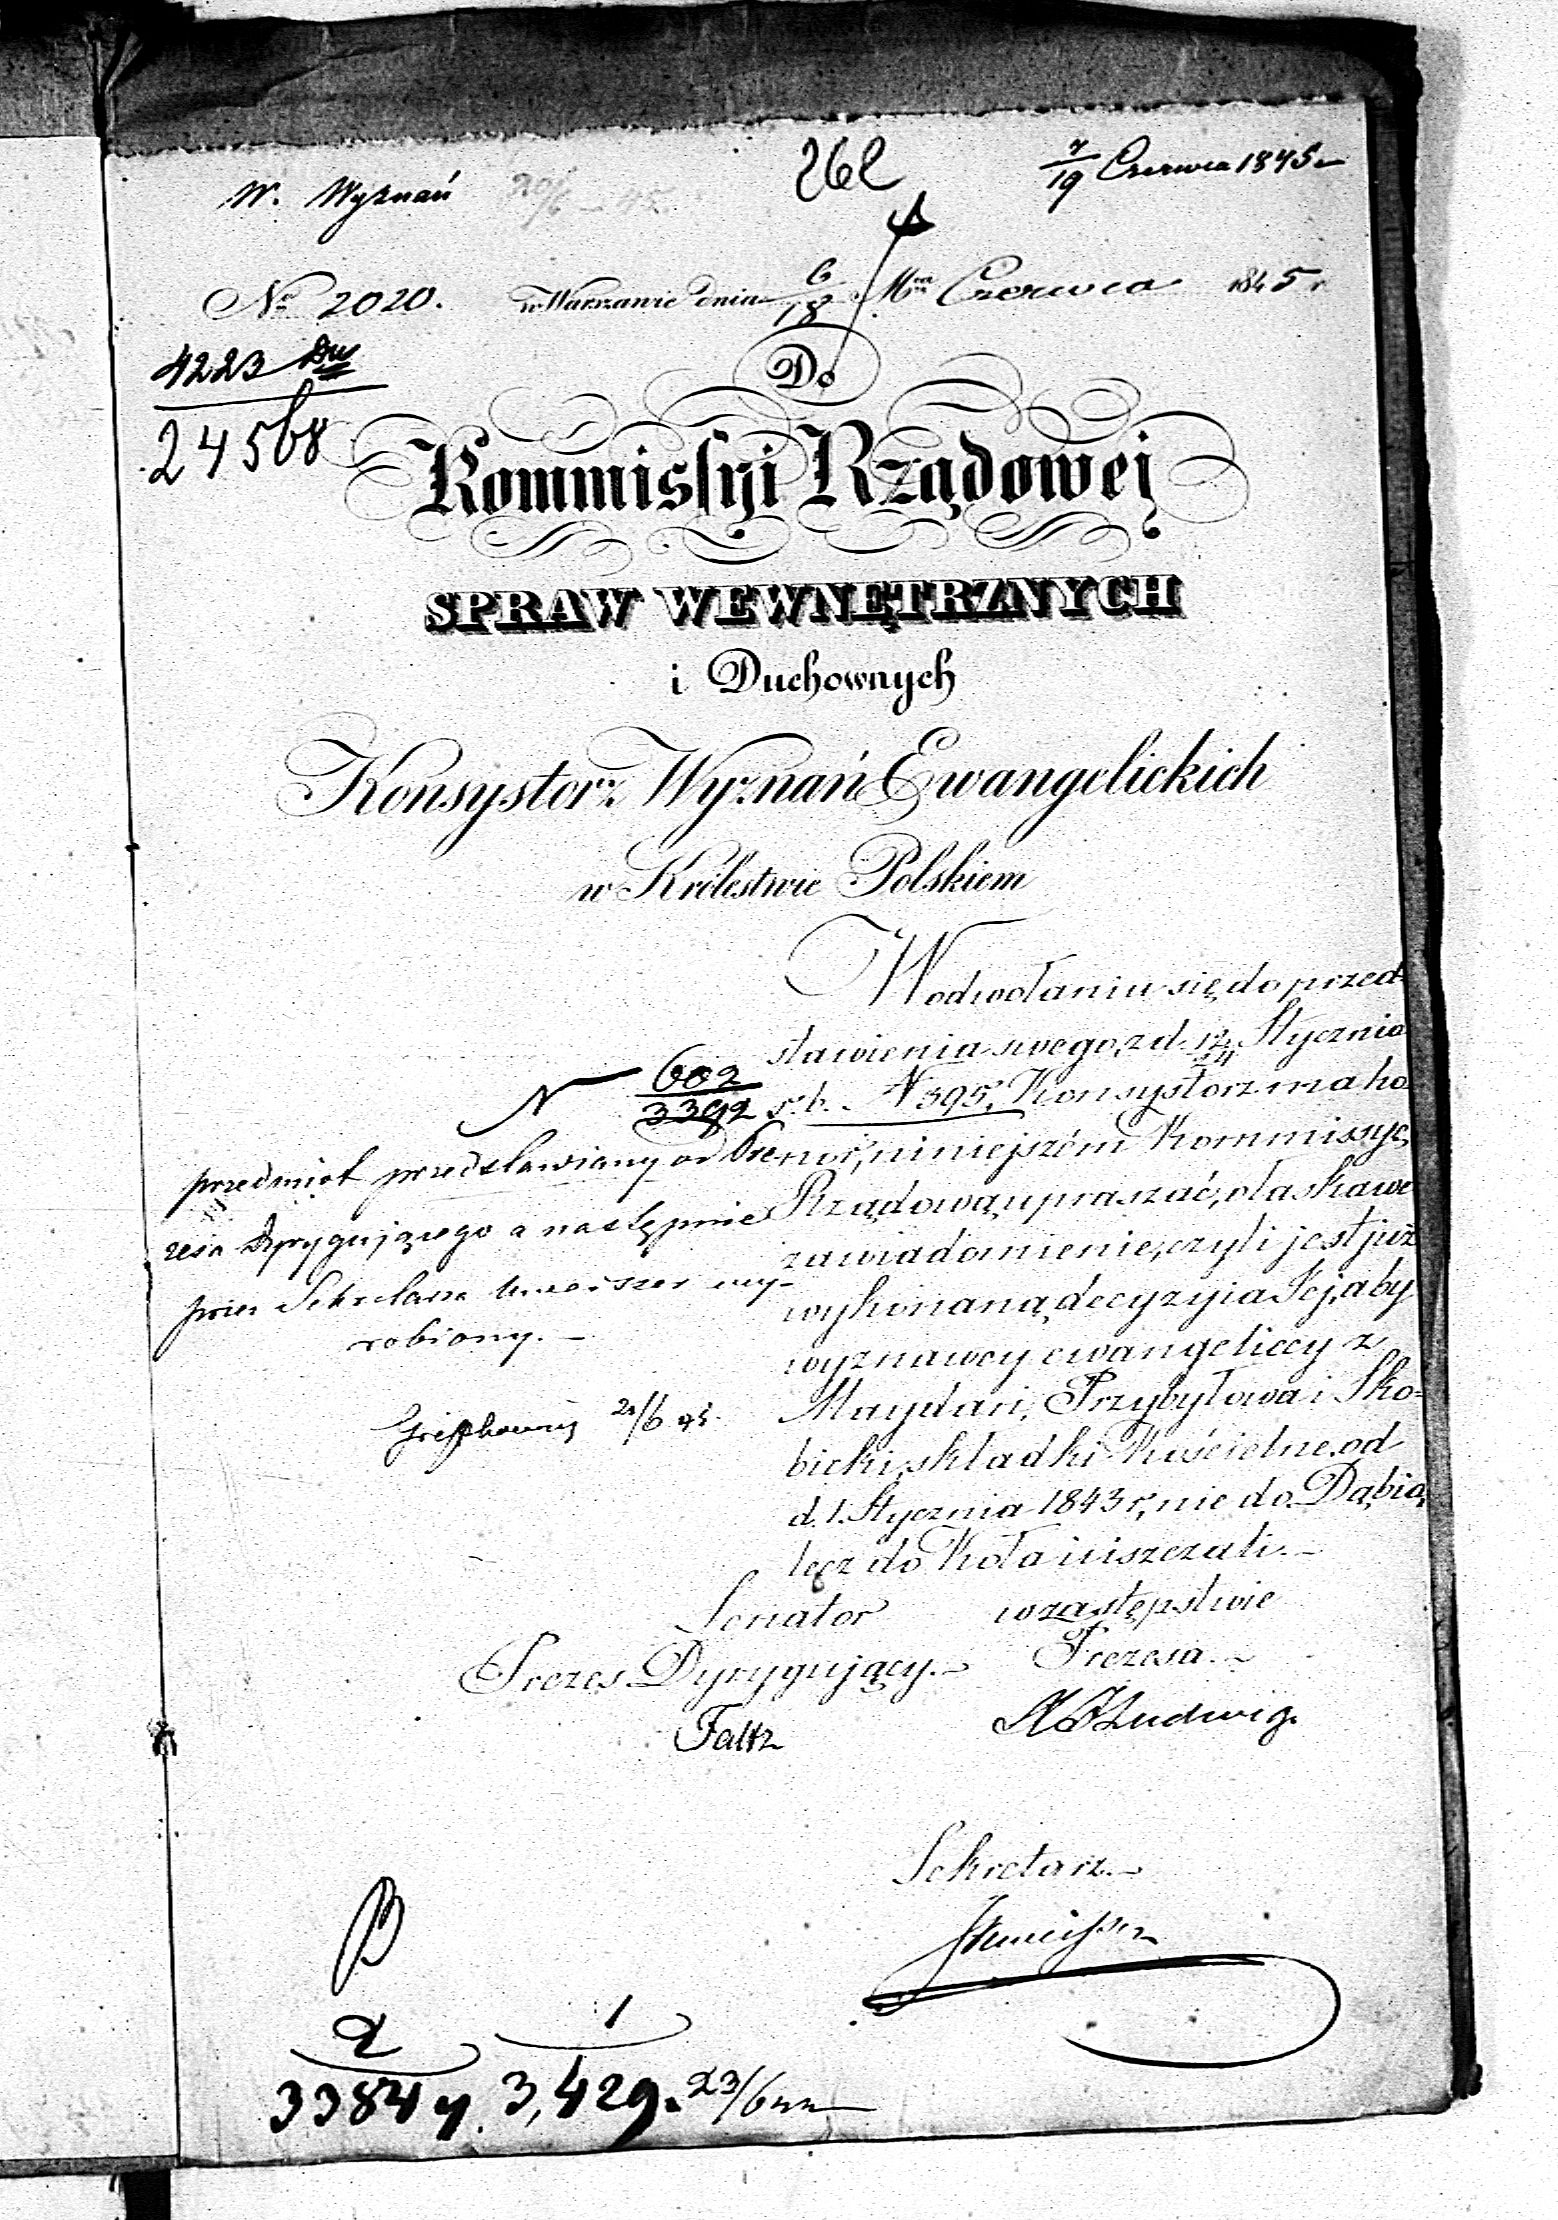 262
7/19 Czerwca 1845 r
W. Wyznań 20/6 – 45.
No 2020. w Warszawie dnia 6/18 Mca Czerwca 1845 r
4223
24568
Do
Kommissyi Rządowej
SPRAW WEWNĘTRZNYCH
i Duchownych
Konsystorz Wyznań Ewangelickich
w Królestwie Polskiem
W odwołaniu się do przed-
stawienia swego, z d. 12/24 Stycznia
r. b. N 395, Konsystorz ma ho-
nor, niniejszém Kommissyę
Rządową upraszać, o łaskawe
zawiadomienie, czyli jest już
wykonaną decyzyia Jej, aby
wyznawcy ewangeliccy z
Majdan, Przybyłowa i Sko-
bicki, składki Kościelne, od
d. 1. Stycznia 1843 r, nie do Dąbia,
lecz do Koła uiszczali. –
N 602/3392
przedmiot przedstawiany od Pre-
zesa Dyrygującego a następnie
przez Sekretarza wy-
robiony. –
21/6 45.
Senator
Prezes Dyrygujący. –
Faltz
w zastępstwie
Prezesa. –
Ludwig.
Sekretarz. –
B
2 1
3384 y. 3,429. 23/6